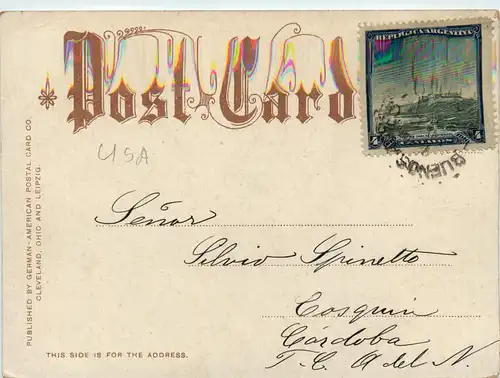 Post Card
REPUBLICA ARGENTINA
4 CENTAVOS 4
BUENOS
USA
Señor
Silvio Spinetto
Cosquin
Córdoba
F. C. A del N.
THIS SIDE IS FOR THE ADDRESS.
PUBLISHED BY GERMAN-AMERICAN POSTAL CARD CO.
CLEVELAND, OHIO AND LEIPZIG.